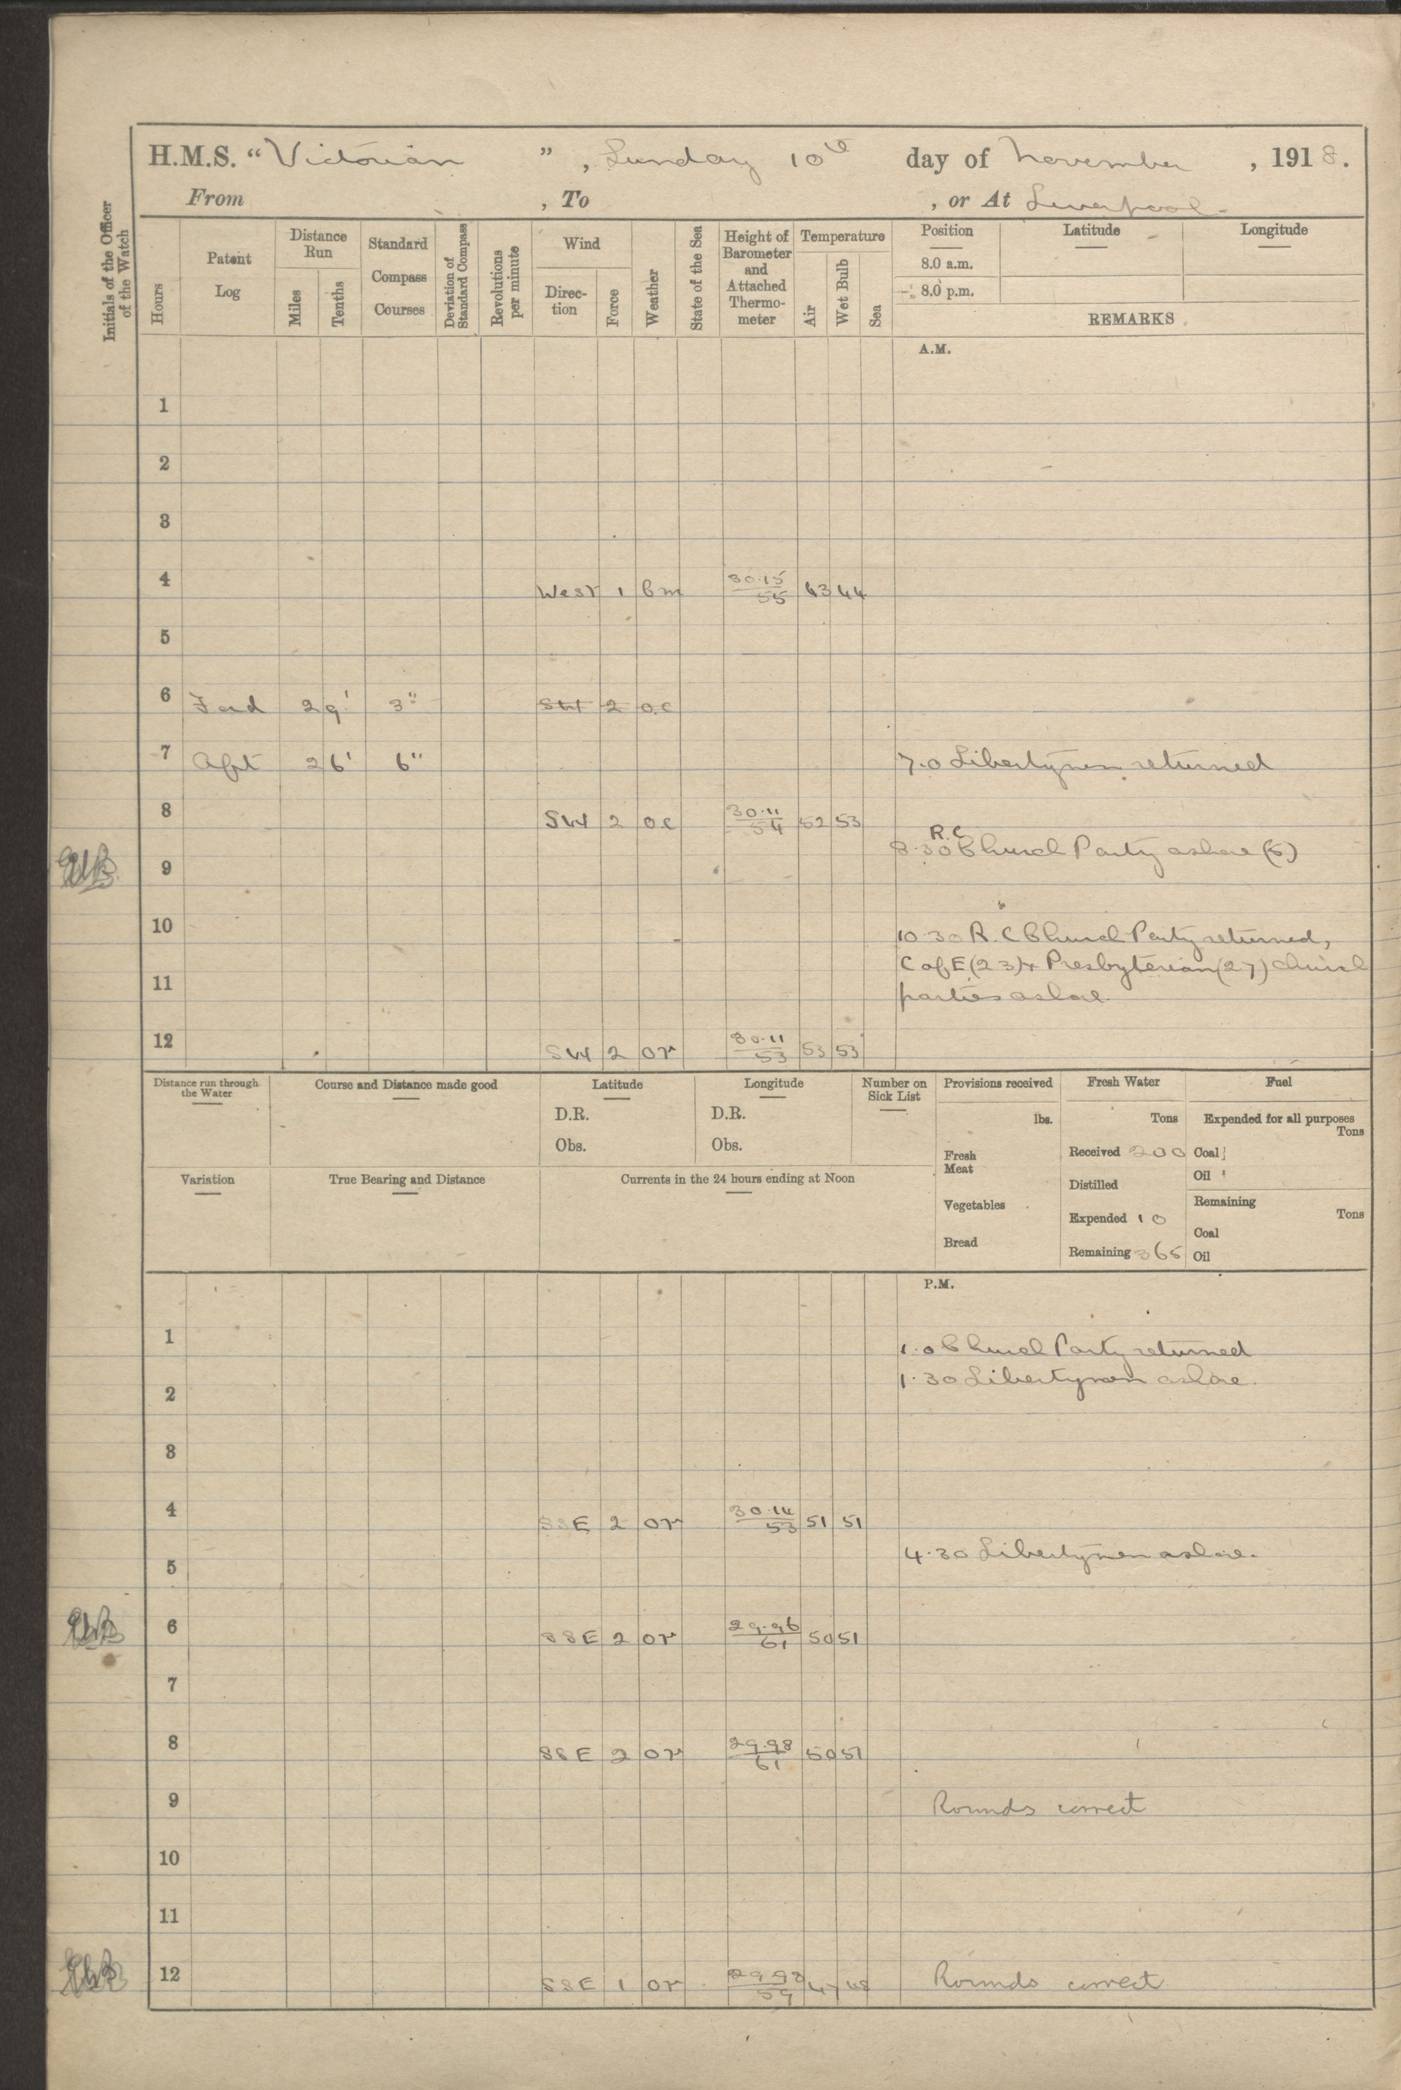 H.M.S. "Victorian", Sunday 10th day of November, 1918.
From , To , or At Liverpool.
Initials of the Officer of the Watch
Hours
Patent Log
Distance Run
Miles
Tenths
Standard Compass Courses
Deviation of Standard Compass
Revolutions per minute
Wind
Direction
Force
Weather
State of the Sea
Height of Barometer and Attached Thermometer
Temperature
Air
Wet Bulb
Sea
Position
8.0 a.m.
8.0 p.m.
Latitude
Longitude
REMARKS
A.M.
1
2
3
4 West 1 bm 30.15 55 43 44
5
6 Ford 29' 3" SW 2 oc
7 Aft 26' 6" 7.0 Libertymen returned
8 SW 2 oc 30.11 54 52 53
R.C
8.30 Church Party ashore (6)
9
10 10.30 R.C Church Party returned,
C of E (23) + Presbyterian (27) church
11 parties ashore.
12 SW 2 or 30.11 53 53 53
Distance run through the Water
Course and Distance made good
Latitude
D.R.
Obs.
Longitude
D.R.
Obs.
Number on Sick List
Provisions received
lbs.
Fresh Meat
Vegetables
Bread
Fresh Water
Tons
Received 200
Distilled
Expended 10
Remaining 365
Fuel
Expended for all purposes
Tons
Coal
Oil
Remaining
Tons
Coal
Oil
Variation
True Bearing and Distance
Currents in the 24 hours ending at Noon
P.M.
1 1.0 Church Party returned
1.30 Libertymen ashore.
2
3
4 SSE 2 or 30.14 53 51 51
4.30 Libertymen ashore.
5
6 SSE 2 or 29.96 61 50 51
7
8 SSE 2 or 29.98 61 50 51
9 Rounds correct
10
11
12 SSE 1 or 29.98 59 47 48 Rounds correct